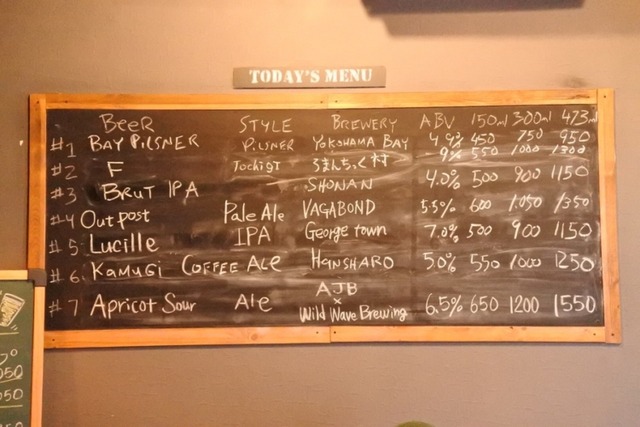 TODAY'S MENU
BEER STYLE BREWERY ABV 150ml 300ml 473ml
#1 BAY PILSNER PILSNER YOKOHAMA BAY 4.9% 450 750 950
#2 F Tochigi ろまんちっく村 9% 550 1000 1300
#3 BRUT IPA SHONAN 4.0% 500 900 1150
#4 Outpost Pale Ale VAGABOND 5.5% 600 1050 1350
#5 Lucille IPA George town 7.0% 500 900 1150
#6 KAMUGI COFFEE ALE HANSHARO 5.0% 550 1000 1250
#7 Apricot Sour Ale AJB × Wild Wave Brewing 6.5% 650 1200 1550
050
050